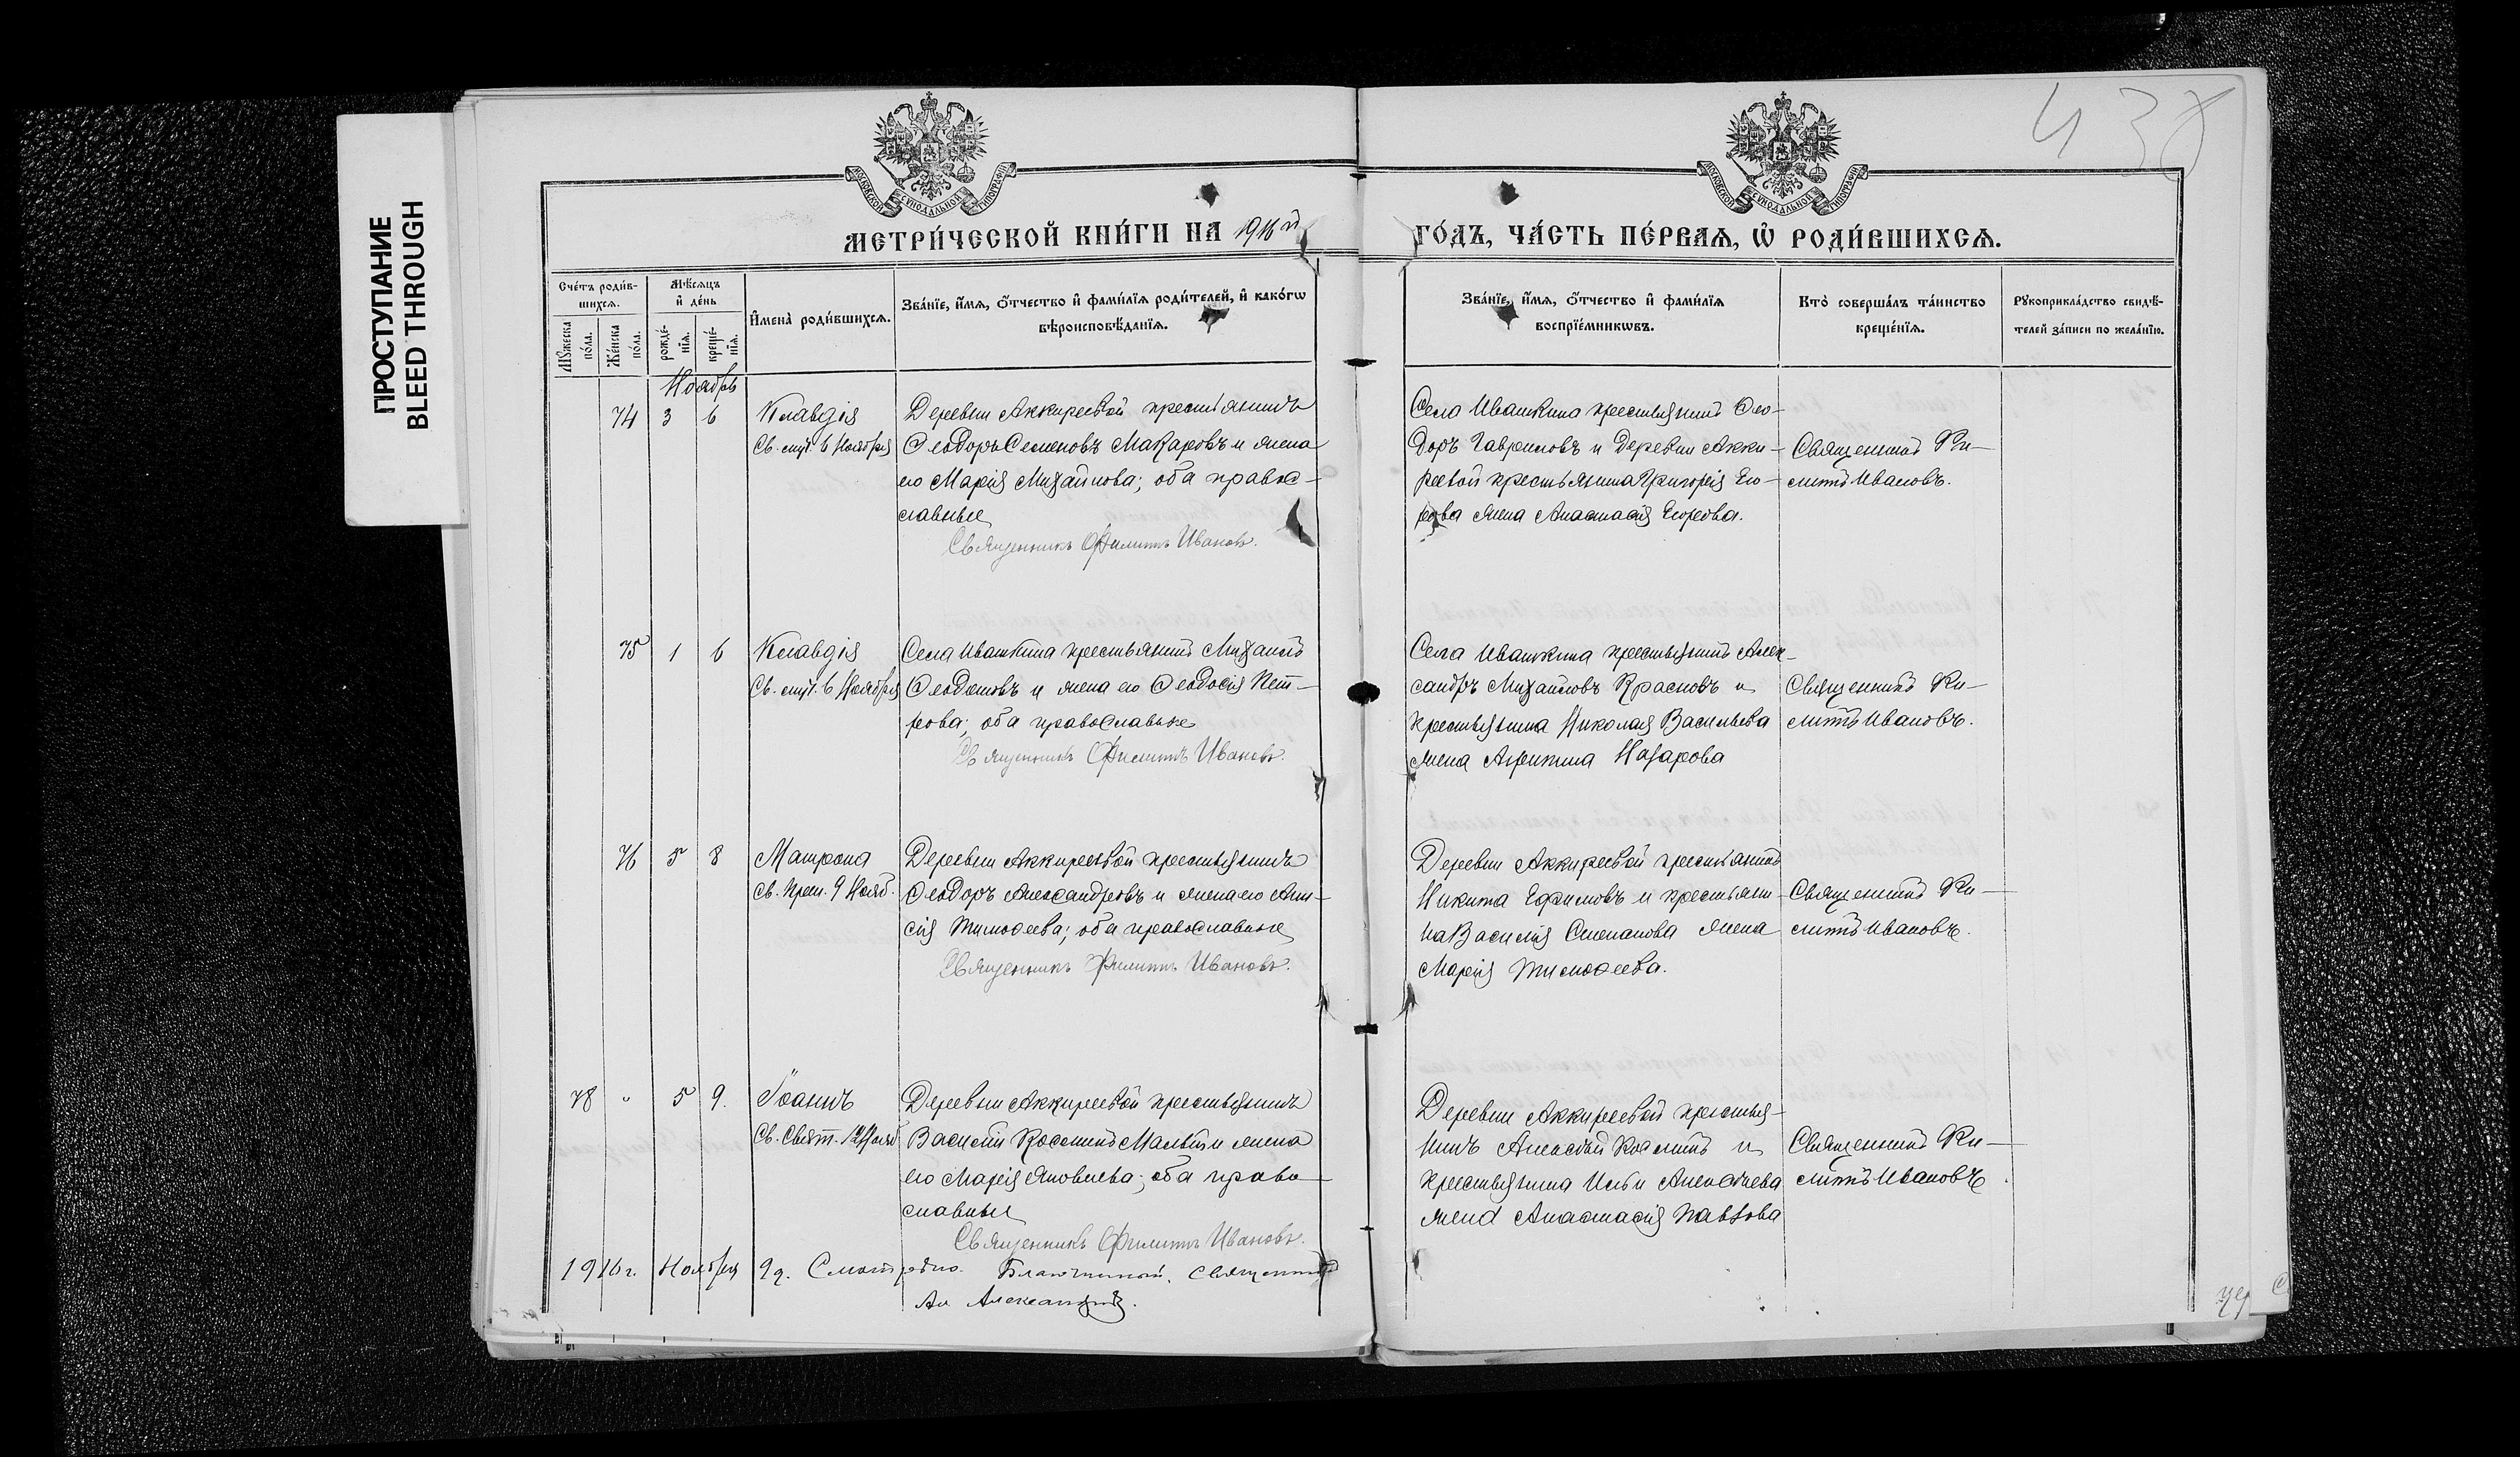 ПРОСТУПАНИЕ
BLEED THROUGH
438
МОСКОВСКОЙ СѴНОДАЛЬНОЙ ТИПОГРАФІИ
МОСКОВСКОЙ СѴНОДАЛЬНОЙ ТИПОГРАФІИ
МЕТРИ́ЧЕСКОЙ КНИ́ГИ НА 1916й
ГО́ДЪ, ЧА́СТЬ ПЕ́РВАѦ, Ѽ РОДИ́ВШИХСѦ.
Сче́тъ роди́в-
шихся.
Мѣ́сяцъ
и҆ де́нь
Мꙋ́жеска по́ла.
Же́нска по́ла.
рожде́нїя.
креще́нїя.
И҆мена̀ роди́вшихся.
Зва́нїе, и҆́мя, ѻ҆́тчество и҆ фами́лїя роди́телей, и҆ како́гѡ
вѣроисповѣ́данїя.
Зва́нїе, и҆́мя, ѻ҆́тчество и҆ фами́лїя
воспрїе́мникѡвъ.
Кто̀ соверша́лъ та́инство
креще́нїя.
Рꙋкоприкла́дство свидѣ́-
телей за́писи по жела́нїю.
Ноябрь
74 3 6 Клавдія
Св. муч. 6 Ноября
Деревни Аккиреевой крестьянинъ
Ѳеодоръ Семеновъ Макаровъ и жена
его Марія Михайлова; оба право-
славные
Священникъ Филиппъ Ивановъ.
Села Ивашкина крестьянинъ Ѳео-
доръ Гавриловъ и деревни Акки-
реевой крестьянина Григорія Его-
рова жена Анастасія Егорова.
Священникъ Фи-
липпъ Ивановъ.
75 1 6 Клавдія
Св. муч. 6 Ноября
Села Ивашкина крестьянинъ Михаилъ
Ѳедотовъ и жена его Ѳеодосія Пет-
рова; оба православные
Священникъ Филиппъ Ивановъ.
Села Ивашкина крестьянинъ Алек-
сандръ Михайловъ Красновъ и
крестьянина Николая Васильева
жена Агрипина Назарова
Священникъ Фи-
липпъ Ивановъ.
76 5 8 Матрона
Св. Преп. 9 Нояб.
Деревни Аккиреевой крестьянинъ
Ѳеодоръ Александровъ и жена его Ани-
сія Тимоѳеева; оба православные
Священникъ Филиппъ Ивановъ.
Деревни Аккиреевой крестьянинъ
Никита Ефимовъ и крестьяни-
на Василія Степанова жена
Марія Тимоѳеева.
Священникъ Фи-
липпъ Ивановъ.
78 " 5 9. Іоаннъ
Св. Свят. 12 Нояб
Деревни Аккиреевой крестьянинъ
Василій Козминъ и жена
его Марія Яковлева; оба право-
славные
Священникъ Филиппъ Ивановъ.
Деревни Аккиреевой крестья-
нинъ Алексѣй Козминъ и
крестьянина Ильи Алексѣева
жена Анастасія Павлова
Священникъ Фи-
липпъ Ивановъ.
1916 г. Ноября 9 д. Смотрѣно. Благочинный, Священникъ
Ал Александровъ.